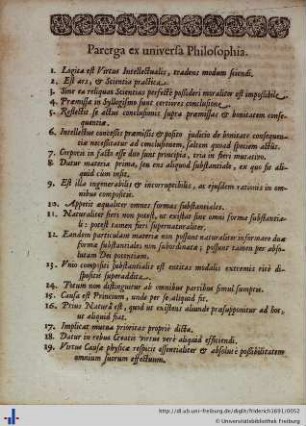 Parerga ex universa Philosophia.
1. Logica est Virtus Intellectualis, tradens modum sciendi.
2. Est ars, & Scientia practica.
3. Sine ea reliquas Scientias perfectè possideri moraliter est impossibile.
4. Præmissæ in Syllogismo sunt certiores conclusione.
5. Reflectit se actus conclusionis supra præmissas & bonitatem conse-
quentiæ.
6. Intellectus concessis præmissis & posito judicio de bonitate consequen-
tiæ necessitatur ad conclusionem, saltem quoad speciem actûs.
7. Corporis in facto esse duo sunt principia, tria in fieri mutativo.
8. Datur materia prima, seu ens aliquod substantiale, ex quo fit ali-
quid cùm insit.
9. Est illa ingenerabilis & incorruptibilis, ac ejusdem rationis in om-
nibus compositis.
10. Appetit æqualiter omnes formas substantiales.
11. Naturaliter fieri non potest, ut existat sine omni forma substantia-
li: potest tamen fieri supernaturaliter.
12. Eandem particulam materiæ non possunt naturaliter informare duæ
formæ substantiales non subordinatæ; possunt tamen per abso-
lutam Dei potentiam.
13. Unio compositi substantialis est entitas modalis extremis ritè di-
spositis superaddita.
14. Totum non distinguitur ab omnibus partibus simul sumptis.
15. Causa est Principium, unde per se aliquid fit.
16. Prius Naturâ est, quod ut existens aliunde præsupponitur ad hoc,
ut aliquid fiat.
17. Implicat mutua prioritas propriè dicta.
18. Datur in rebus Creatis virtus verè aliquid efficiendi.
19. Virtus Causæ physicæ respicit essentialiter & absolutè possibilitatem
omnium suorum effectuum.
http://dl.ub.uni-freiburg.de/diglit/friderich1691/0052
© Universitätsbibliothek Freiburg